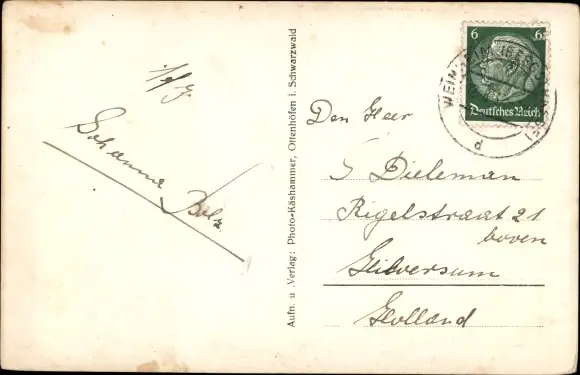 Johanna Bolz
Aufn. u. Verlag: Photo-Käshammer, Ottenhöfen i. Schwarzwald
6 6
Deutsches Reich
d
Den Heer
S Dieleman
Rigelstraat 21
boven
Hilversum
Holland